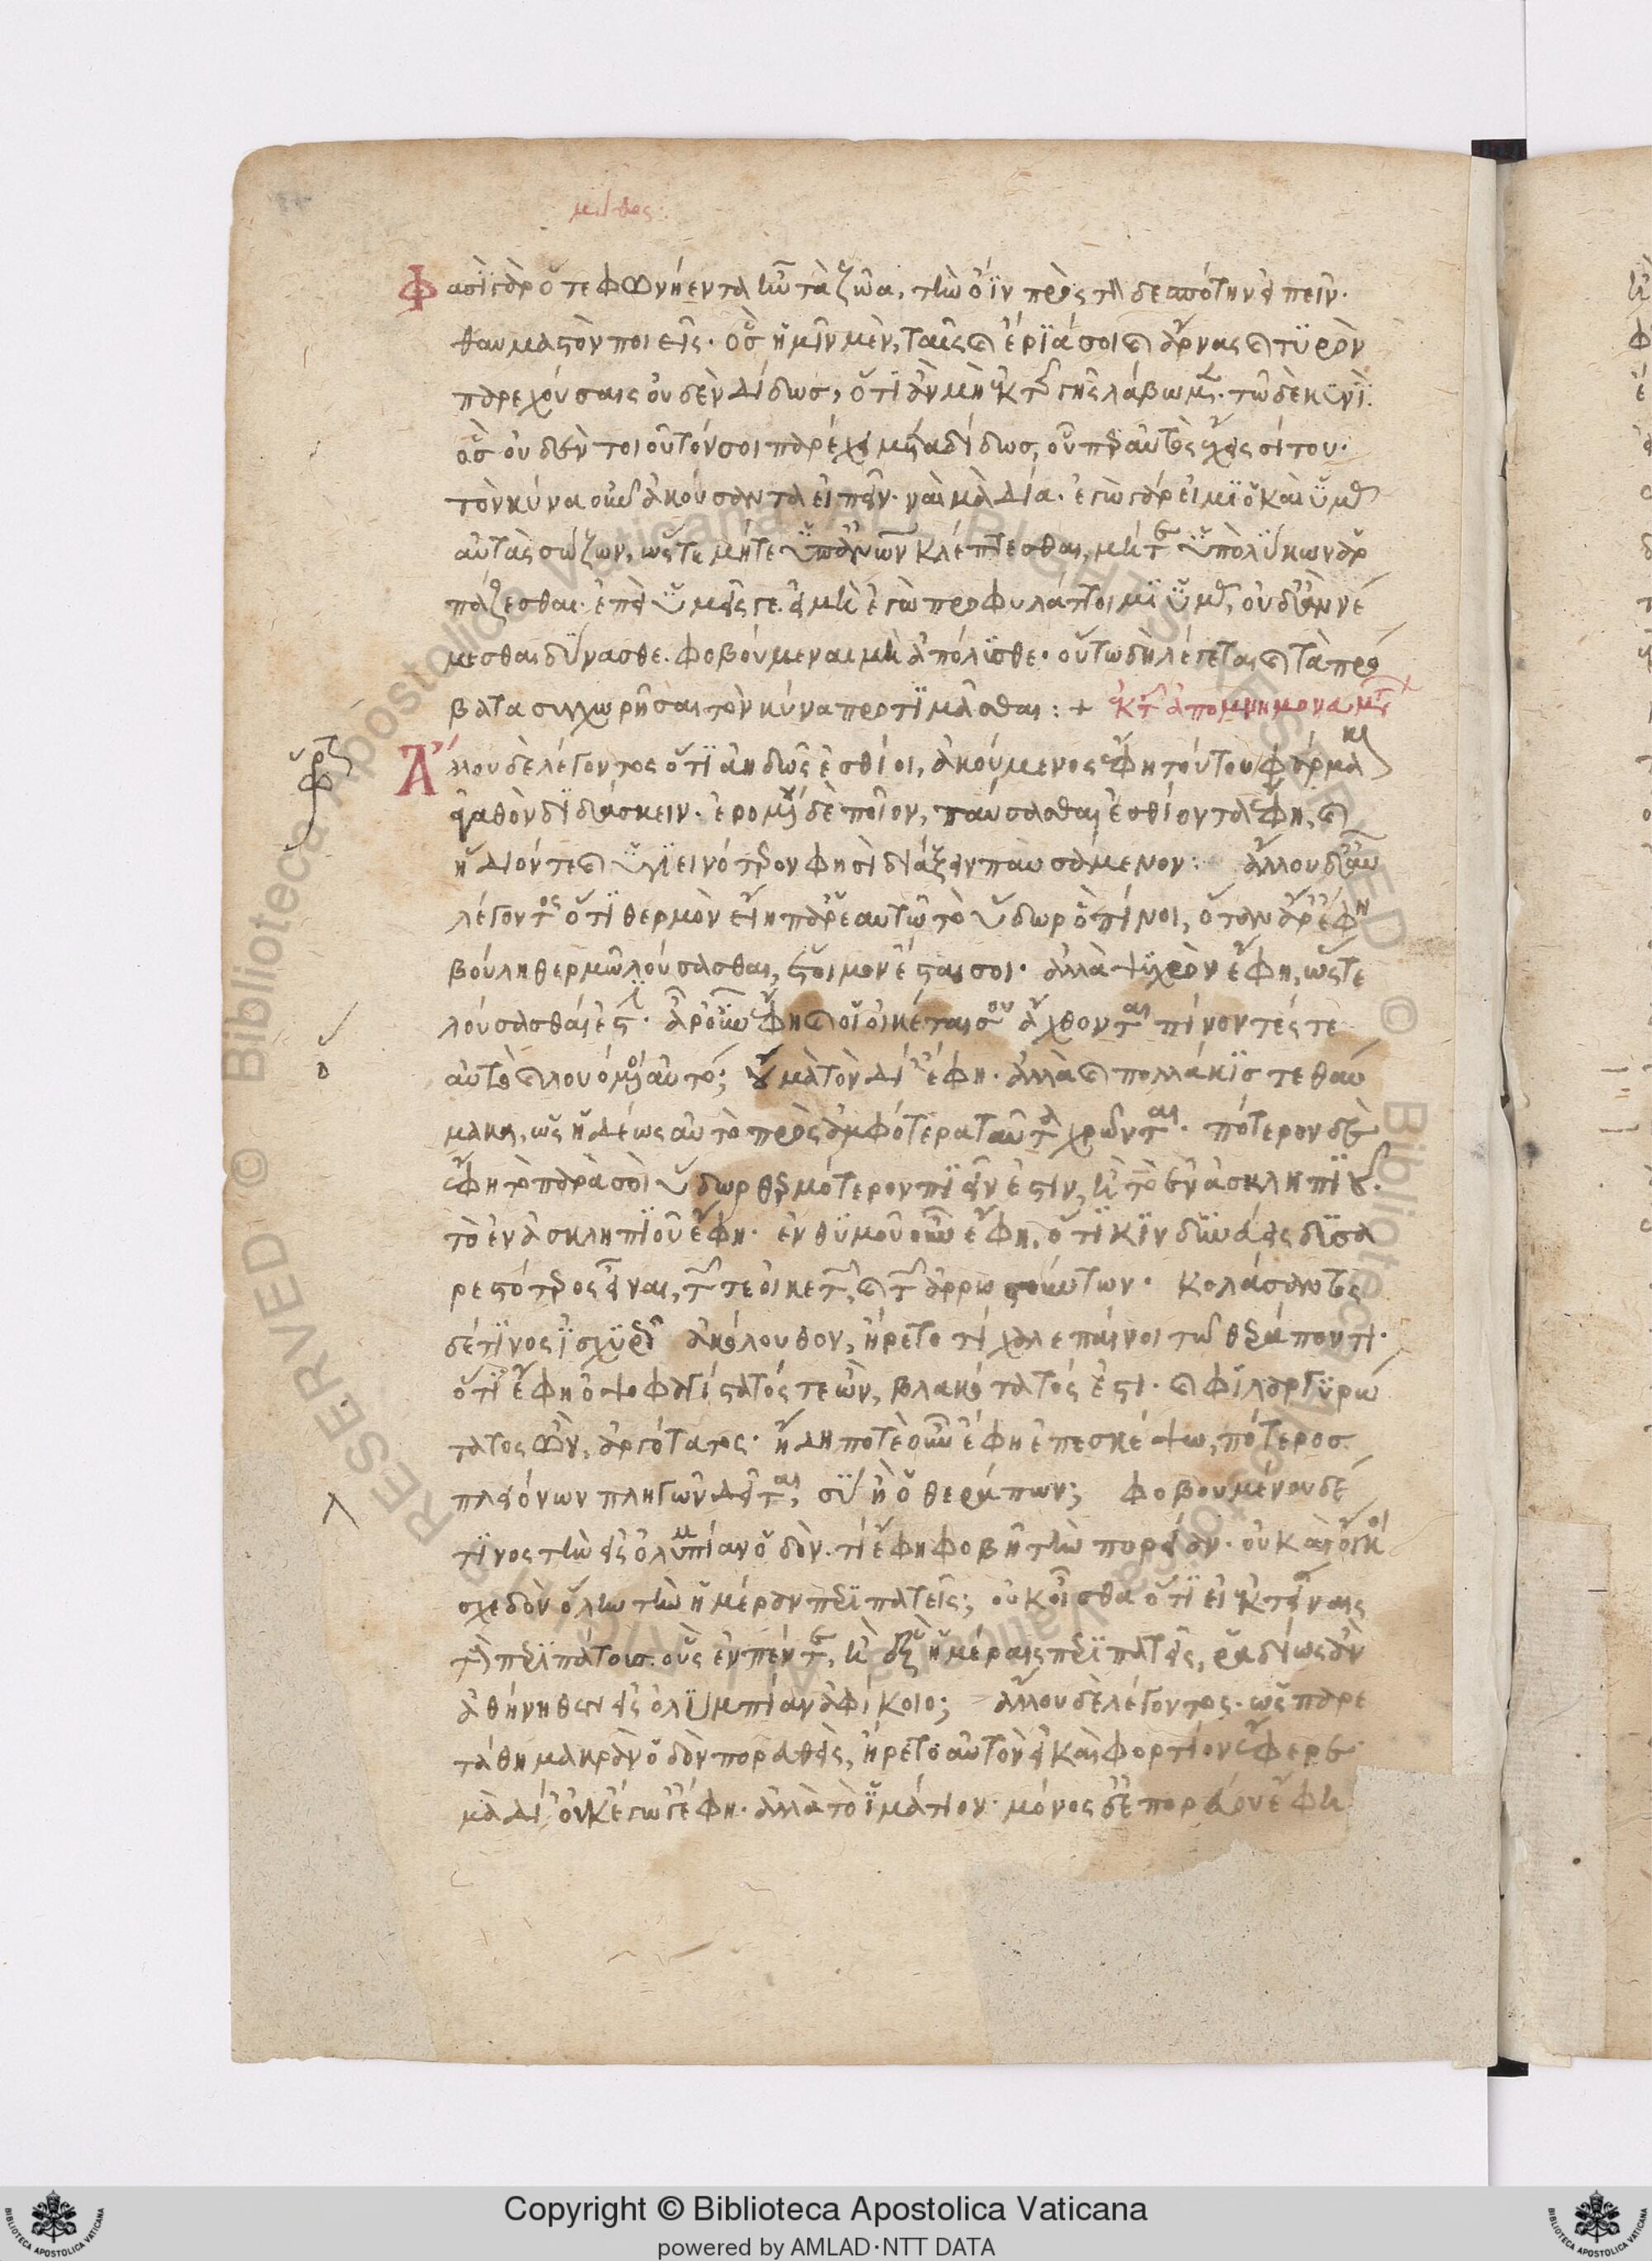 μῦθος:
Φασὶ γὰρ ὅτε φωνήεντα ἦν τὰ ζῶα, τὴν ὄϊν πρὸς τὸν δεσπότην εἰπεῖν·
θαυμαστὸν ποιεῖς· ὃς ἡμῖν μὲν, ταῖς καὶ ἔριά σοι καὶ ἄρνας καὶ τυρὸν
παρεχούσαις οὐδὲν δίδως, ὅτι ἂν μὴ ἐκ τῆς γῆς λάβωμεν· τῶ δὲ κυνὶ
ὃς οὐδὲν τοιοῦτόν σοι παρέχει μεταδίδως, οὗπερ αὐτὸς ἔχεις σίτου·
τὸν κύνα οὖν ἀκούσαντα εἰπεῖν· ναὶ μὰ Δία· ἐγὼ γάρ εἰμι ὁ καὶ ὑμᾶς
αὐτὰς σώζων, ὥστε μήτε ὑπὸ ἀνων κλέπτεσθαι, μήτε ὑπὸ λύκων ἁρ
πάζεσθαι· ἐπεὶ ὑμεῖς γε εἰ μὴ ἐγὼ προφυλάττοιμι ὑμᾶς, οὐδ' ἂν νέ
μεσθαι δύναισθε· φοβούμεναι μὴ ἀπόλισθε· οὕτω δὴ λέγεται καὶ τὰ πρό
βατα συγχωρῆσαι τὸν κύνα προτιμᾶσθαι: + ἐκ τῶν ἀπομνημονευμάτων
Ἄλλου δὲ λέγοντος ὅτι ἀηδῶς ἐσθίοι, ἀκούμενος ἔφη τούτου φάρμακον
ἀγαθὸν διδάσκειν· ἐρομένου δὲ ποῖον, παύσασθαι ἐσθίοντα ἔφη, καὶ
ἥδιόν τε καὶ ὑγιεινότερον φησὶ διάξειν παυσάμενον: ἄλλου δ' αὖ
λέγοντος ὅτι θερμὸν εἴη παρ' ἑαυτῶ τὸ ὕδωρ ὃ πίνοι, ὅταν ἄρ' ἔφη
βούλη θερμῶ λούσασθαι, ἕτοιμον ἔσται σοι· ἀλλὰ ψυχρὸν ἔφη, ὥστε
λούσασθαι ἐστί· ἆρ' οὖν ἔφη καὶ οἱ οἰκέται σου ἄχθονται πίνοντές τε
αὐτὸ καὶ λουόμενοι αὐτό; οὐ μὰ τὸν Δί' ἔφη· ἀλλὰ καὶ πολλάκις τεθαύ
μακα, ὡς ἡδέως αὐτὸ πρὸς ἀμφότερα ταῦτα χρῶνται· πότερον δὲ
ἔφη τὸ παρὰ σοὶ ὕδωρ θερμότερον πιεῖν ἐστιν, ἢ τὸ ἐν ἀσκληπιοῦ·
τὸ ἐν ἀσκληπιοῦ ἔφη· ἐνθυμοῦ οὖν ἔφη, ὅτι κινδυνεύεις δυσα
ρεστότερος εἶναι, τῶν τε οἰκετῶν, καὶ τῶν ἀρρωστούντων· κολάσαντος
δέ τινος ἰσχυρῶς ἀκόλουθον, ἤρετο τί χαλεπαίνοι τῶ θεράποντι·
ὅτι ἔφη ὀψοφαγίστατός τε ὢν, βλακότατός ἐστι· καὶ φιλαργυρώ
τατος ὢν, ἀργότατος· ἤδη ποτὲ οὖν ἔφη ἐπεσκέψω, πότερος
πλειόνων πληγῶν δεῖται, σὺ ἢ ὁ θεράπων; φοβουμένου δέ
τινος τὴν εἰς ὀλυμπίαν ὁδὸν· τί ἔφη φοβῆ τὴν πορείαν· οὐ καὶ οἴκοι
σχεδὸν ὅλην τὴν ἡμέραν περιπατεῖς; οὐκ οἶσθα ὅτι εἰ ἐκτείναις
τοὺς περιπάτους οὓς ἐν πέντε, ἢ ἓξ ἡμέραις περιπατεῖς, ῥαδίως ἂν
ἀθήνηθεν εἰς ὀλυμπίαν ἀφίκοιο; ἄλλου δὲ λέγοντος· ὡς παρε
τάθη μακρὰν ὁδὸν πορευθεὶς, ἤρετο αὐτὸν εἰ καὶ φορτίον ἔφερε·
μὰ Δί' οὐκ ἔγωγ' ἔφη· ἀλλὰ τὸ ἱμάτιον· μόνος δ' ἐπορεύου ἔφη